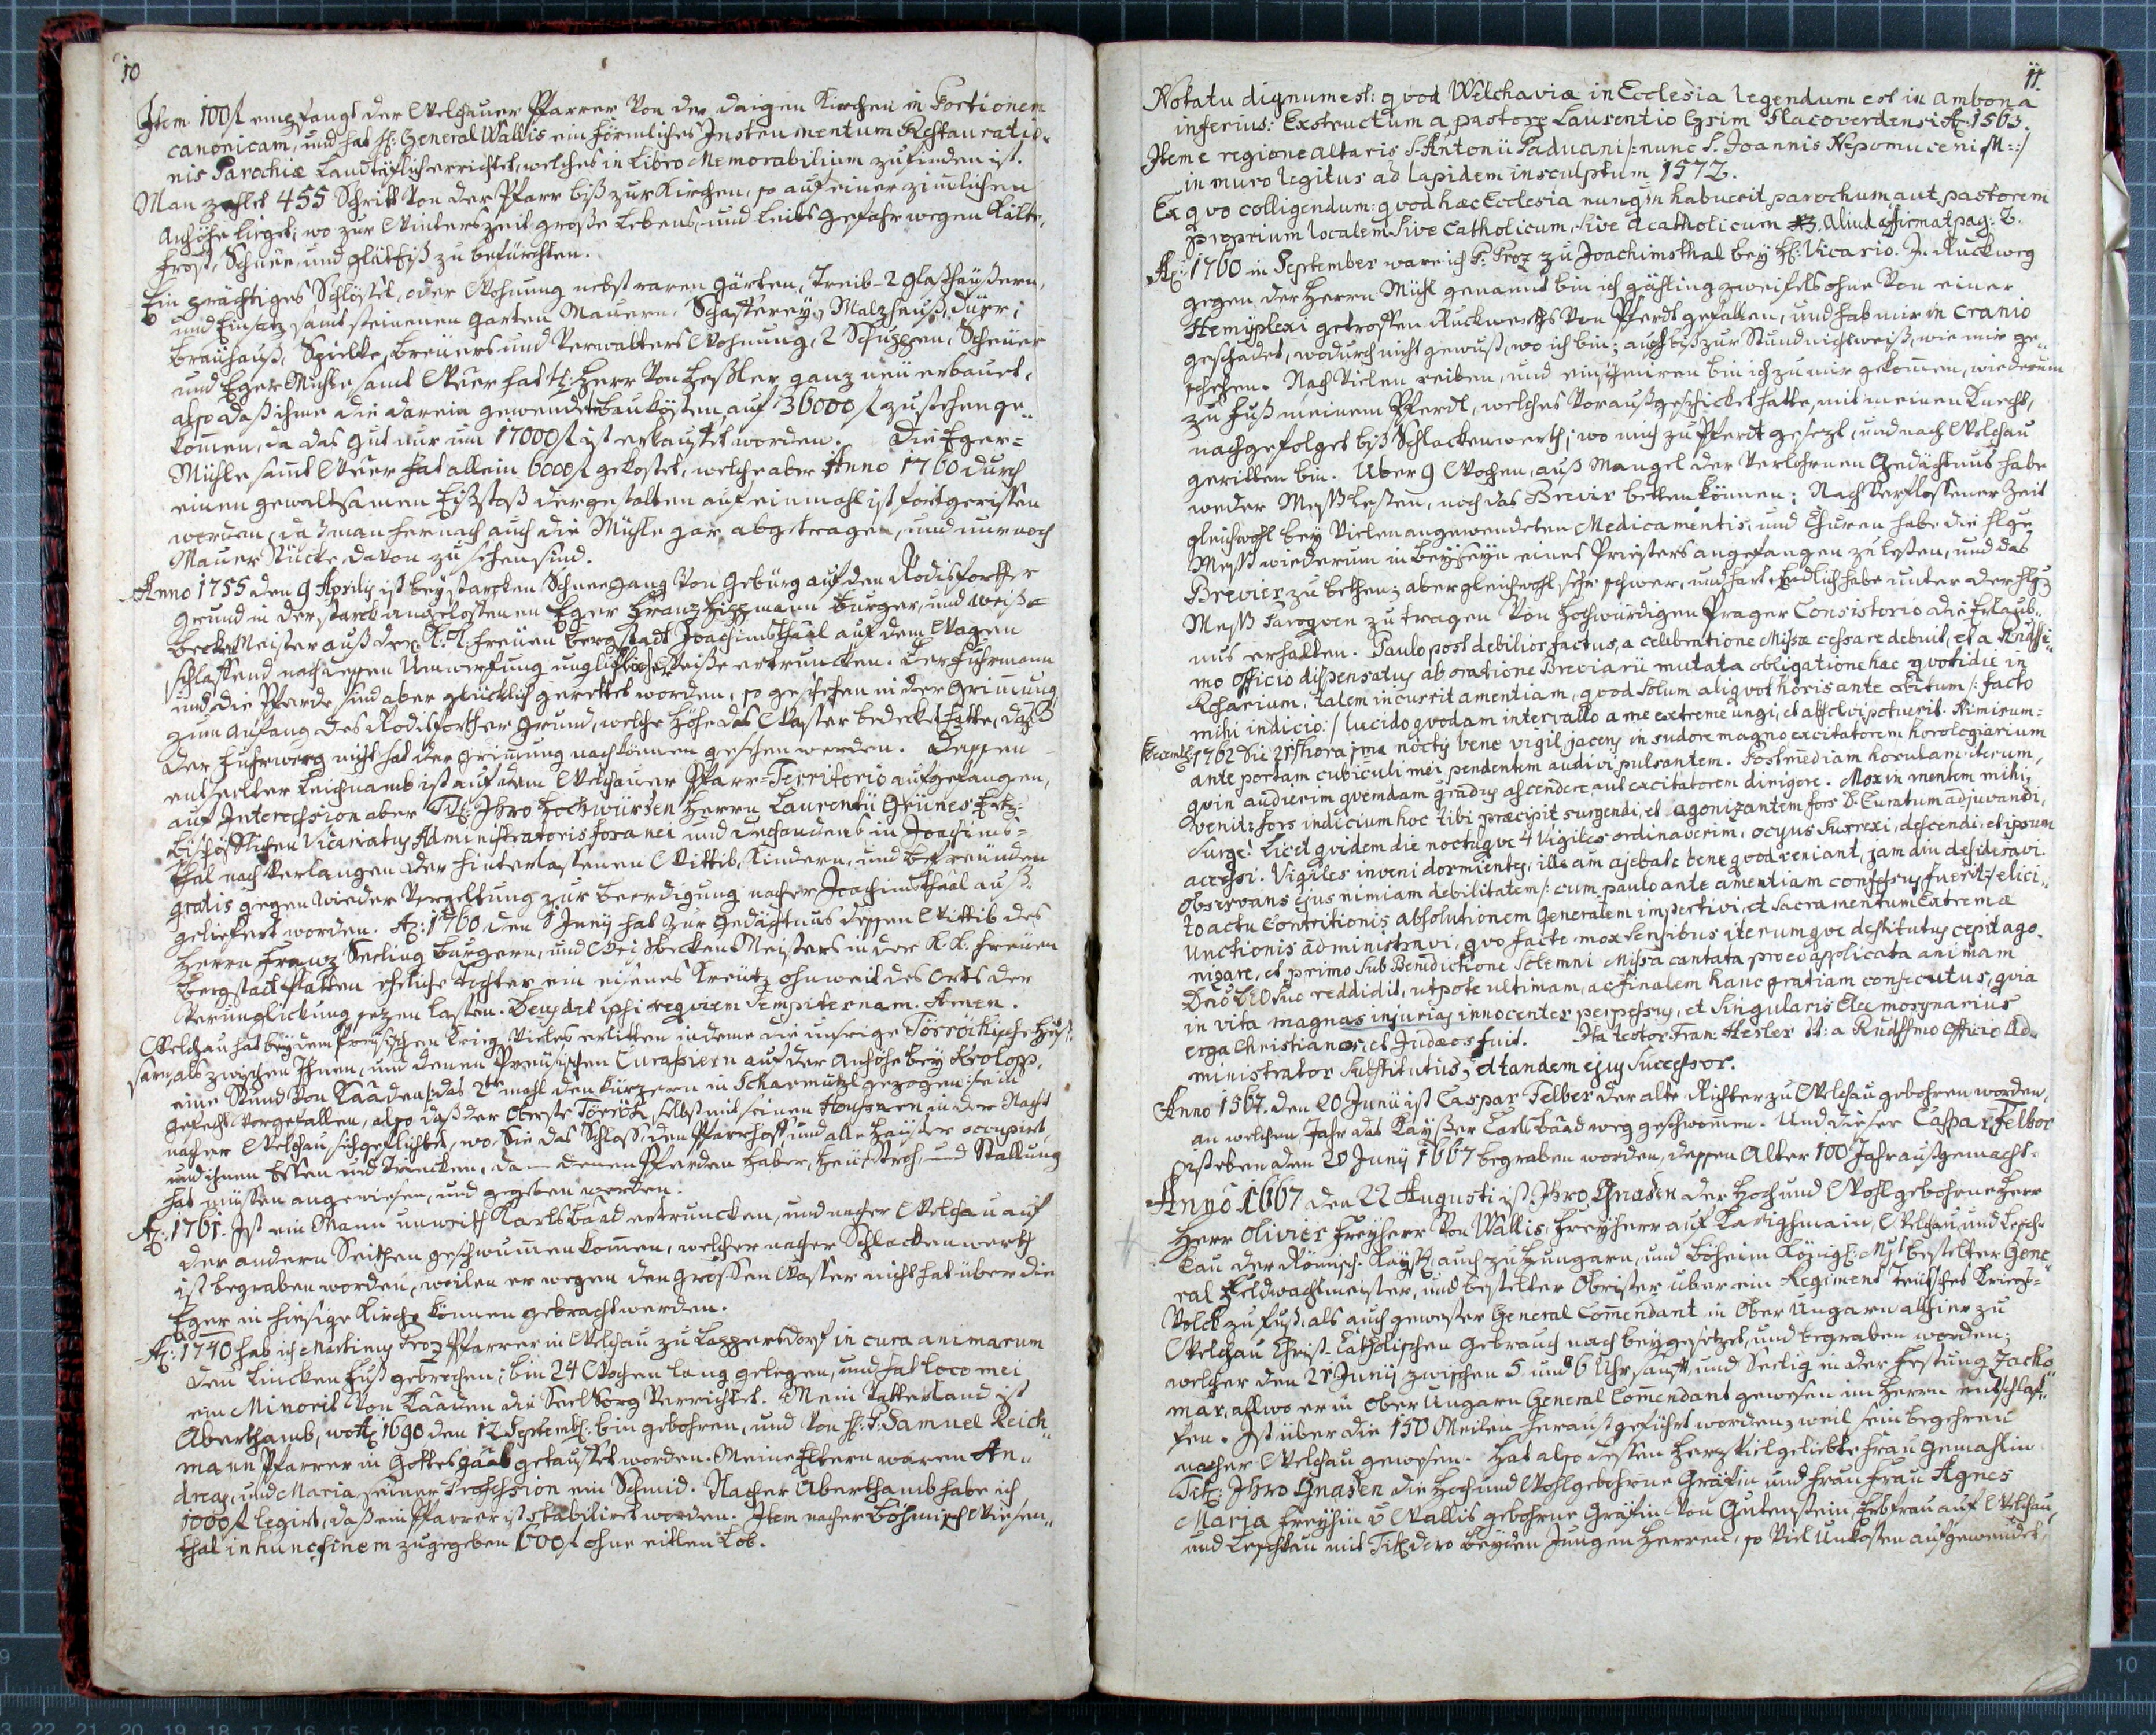 10
Item 100 fl empfangt der Welchauer Pfarrer von der daigen Kirchen in Portionem
canonicam, und hat H: General Wallis ein förmliches Instrumentum Restauratio-
nis Parochiæ Landtäflich errichtet, welches in Libro Memorabilium zu finden ist.
Man zehlet 455 Schritt von der Pfarr biß zur Kirchen, so auf einer zimlichen
Anhöhe lieget; wo zur Winterszeit große Lebens- und Leibs gefahr wegen Kälte,
frost, Schnee, und glatteiß zu befürchten.
Ein prächtiges Schlössel, oder Wohnung nebst raren Gärten, Treib- 2 glaßhäußern,
und Einsatz samt steinenen Garten Mauern, Schafferey, Malzhauß, Dürr,
Brauhauß, Breuers und Verwalters Wohnung, 2 Schuppen, Scheuer
und Eger Mühle samt Wöhr hat Herr von Heßler ganz neu erbauet,
also daß ihme die darein gewendete bau kösten auf 36000 fl zu stehen ge-
kommen, da das gut nur um 17000 fl ist erkauffet worden. Die Eger-
Mühle samt Wöhr hat allein 6000 fl gekostet, welche aber Anno 1760 durch
einen gewaltsamen Eißstoß dergestalten auf einmahl ist fortgerissen
worden, daß man hernach auch die Mühle gar abgetragen, und nur noch
Mauer Stücke davon zu sehen sind.
Anno 1755 den 9 Aprilis ist bey starcken Schneegang von Gebürg auf den Rodisforther
grund in der starck angeloffenen Eger Franz Hippmann burger, und weiß-
becken Meister auß der K. K. freuen bergstadt Joachimsthaal auf dem Wagen
schlaffend nach dessen Umwerffung unglücklicher Weiße ertruncken. Der fuhrmann
und die Pferde sind aber glücklich gerettet worden, so geschehen in der Grimung
zum Anfang des Rodisforther grund, welche Höhe das Wasser bedecket hatte, daß
der fuhrweeg nicht hat der Grimung nach können gesehen werden. Dessen
entseelter Leichnamb ist auf dem Welchauer Pfarr-Territorio aufgefangen,
auf Intercession aber Tit: Ihro Hochwürden Herrn Laurentii Grünes Ertz-
bischöfflichen Vicariatus Administratoris foranei und Dechandens in Joachims-
thal nach Verlangen der hinterlassenen Wittib, Kindern, und Befreunden
gratis gegen wieder Vergeltung zur beerdigung nacher Joachimsthaal auß-
geliefert worden. Aõ: 1760 den 8 Juny hat zur Gedächtnus dessen Wittib des
Herrn Franz Seeling burgern, und Weißbecken Meisters in der K. K. freuen
bergstadt Platten eheliche Tochter ein eisenes Kreutz ohnweit des Orts der
Verunglückung sezen lassen. Deus det ipsi requiem sempiternam. Amen.
Welchau hat bey dem Preusischen Krieg Vieles erlitten indeme die unsrige Törröckische Hus-
saren, als zwischen Ihnen, und denen Preusischen Curassiern auf der Anhöhe bey Kroloss,
eine Stund von Kaaden, das 2te mahl den Kürzern in Scharmützl gezogen sein
gefecht vorgefallen, also daß der Oberste Törrök selbst mit seinen Housaren in der Nacht
nacher Welchau sich geflichtet, wo Sie das Schloss, den Pfarrhoff und alle Häußer occupirt,
und ihnen Essen und Trincken, dann denen Pferden Haber, Heu, Stroh, und Stallung
hat müssen angewiesen, und gegeben werden.
Aõ: 1761. Ist ein Mann unweith Karlsbaad ertruncken, und nacher Welchau auf
der andern Seithen geschwummen komen, welcher nacher Schlackenwerth
ist begraben worden, weilen er wegen den großen Wasser nicht hat über die
Eger in hiesige Kirche können gebracht werden.
Aõ: 1740 hab ich Martinus Proz Pfarrer in Welchau zu Loppersdorf in cura animarum
den Lincken fuß gebrochen; bin 24 Wochen lang gelegen, und hat loco mei
ein Minorit von Kaaden die Seel Sorg verrichtet. Mein Vatterland ist
Aberthamb, wo Aõ 1690 den 12 Septemb: bin gebohren, und von H: P: Samuel Reich-
mann Pfarrer in Gottesgaab getauffet worden. Meine Eltern waren An-
dreas, und Maria seiner Profession ein Schmid. Nacher Aberthamb habe ich
1000 fl legirt, daß ein Pfarrer ist stabiliret worden. Item nacher Böhmisch Wiesen-
thal in hunc finem zugegeben 600 fl ohne eitlen Lob.
11.
Notatu dignum est: quod Welchaviæ in Ecclesia legendum est in ambona
inferius: Exstructum a pastore Laurentio Egrim Slacoverdensi Aõ: 1563.
Item e regione altaris S. Antonii Paduani /: nunc S. Joannis Nepomuceni M: :/
in muro legitus ad lapidem insculptum 1572.
Ex quo colligendum: quod hæc Ecclesia nunquam habuerit parochum aut pastorem
proprium localem sive catholicum, sive acatholicum. Aliud affirmat pag: 2.
Aõ: 1760 in September ware ich P: Proz zu Joachimsthal bey H: Vicario. In Ruckweg
gegen der Herrn Mühl genannt bin ich gähling zweifels ohne von einer
Hemyplexi getroffen Ruckwerths von Pferdt gefallen, und hab mir in Cranio
geschadet, wodurch nicht gewust, wo ich bin; auch biß zur Stund nicht weiß, wie mir ge-
schehen. Nach Vielen reiben, und einschmiren bin ich zu mir gekomen, wiederum
zu fuß meinem Pferdt, welches vorauß geschicket hatte, mit meinen Knecht,
nachgefolget biß Schlackenwerth; wo mich zu Pferdt gesezt, und nach Welchau
geritten bin. Uber 9 Wochen, auß Mangel der verlohrnen Gedächtnus habe
weder Meß lesen, noch das Brevir betten können; Nach Verflossener Zeit
gleichwohl bey Vielen angewendeten Medicamentis, und Churen habe die hlge
Meß wiederum in beyseyn eines Priesters angefangen zu lesen, und das
Brevier zu bethen; aber gleichwohl sehr schwer, und hart. Endlich habe unter der hlg:
Meß Paroquen zu tragen von Hochwürdigen Prager Consistorio die Erlaub-
nus erhalten. Paulo post debilior factus, a celebratione Missæ cessare debuit, et a Rndssi-
mo Officio dispensatus ab oratione Breviarii mutata obligatione hac quotidie in
Rosarium, talem incurrit amentiam, quod solum aliquot horis ante obitum /: facto
mihi indicio :/ lucido quodam intervallo a me extreme ungi, et absolvi potuerit. Nimirum:
Decemb: 1762 die 21 hora 1ma noctis bene vigil jacens in sudore magno excitatorem horologiarium
ante portam cubiculi mei pendentem audivi pulsantem. Post mediam horulam iterum,
quin audierim quemdam gradus ascendere aut excitatorem dirigere. Mox in mentem mihi
venit: fors indicium hoc tibi præcipit surgendi, et agonizantem fors D. Curatum adjuvandi,
Surge! Licet quidem die noctuque 4 Vigiles ordinaverim, ocyus surrexi, descendi, et ipsum
accessi. Vigiles inveni dormientes, ille am ajebat: bene quod veniant, jam diu desideravi.
Observans ejus nimiam debilitatem /: cum paulo ante amentiam confessus fuerit :/ elici-
to actu Contritionis absolutionem Generalem impertivi, et Sacramentum Extremæ
Unctionis administravi, quo facto mox sensibus iterumque destitutus cepit ago-
nizare, et primo sub Benedictione Solemni Missa cantata pro eo applicata animam
Deo suo reddidit, utpote ultimam, ac finalem hanc gratiam consecutus, quia
in vita magnas injurias innocenter perpessus, et Singularis Eleemosynarius
erga Christianos, et Judæos fuit. Ita testor Fran: Hesler a Rndssmo Officio Ad-
ministrator Substitutus, et tandem ejus Successor.
Anno 1567. den 20 Junii ist Caspar Felber der alte Richter zu Welchau gebohren worden,
an welchen Jahr das Kayßer Carlsbaad weg geschwomen. Und dieser Caspar Felber
ist eben den 20 Juny 1667 begraben worden, dessen Alter 100 Jahr außgemacht.
Anno 1667 den 22 Augusti ist Ihro Gnaden der Hoch und Wohlgebohrne Herr
Herr Olivier Freyherr von Wallis Freyherr auf Karighmain, Welchau, und Lesch-
kau der Römisch. Kayß: auch zu Hungarn, und Böheim Königl: Myst bestelter Gene-
ral Feldwachtmeister, und bestelter Obrister über ein Regiment teutsches Kriegs-
Volck zu fuß, als auch gewester General Comendant in Ober Ungarn allhier zu
Welchau Christ-Catholischen Gebrauch nach beygesetzet, und begraben worden;
welcher den 21 Juny zwischen 5 und 6 Uhr sanft und Seelig in der Festung Zacko-
mar, allwo er in Ober Ungarn General Comendant gewesen im Herrn entschlaf-
fen. Ist über die 150 Meilen herauß geführt worden, weil sein begehren
nacher Welchau gewesen. Hat also dessen Herz Vielgeliebte Frau Gemahlin
Tit: Ihro Gnaden die Hoch und Wohlgebohrne Gräfin und Frau Frau Agnes
Maria Freyhin v Wallis gebohrne Gräfin von Gutenstein, Erbfrau auf Welchau,
und Leschkau mit Tit: dero beyden Jungen Herren, so Viel Unkosten aufgewendet,